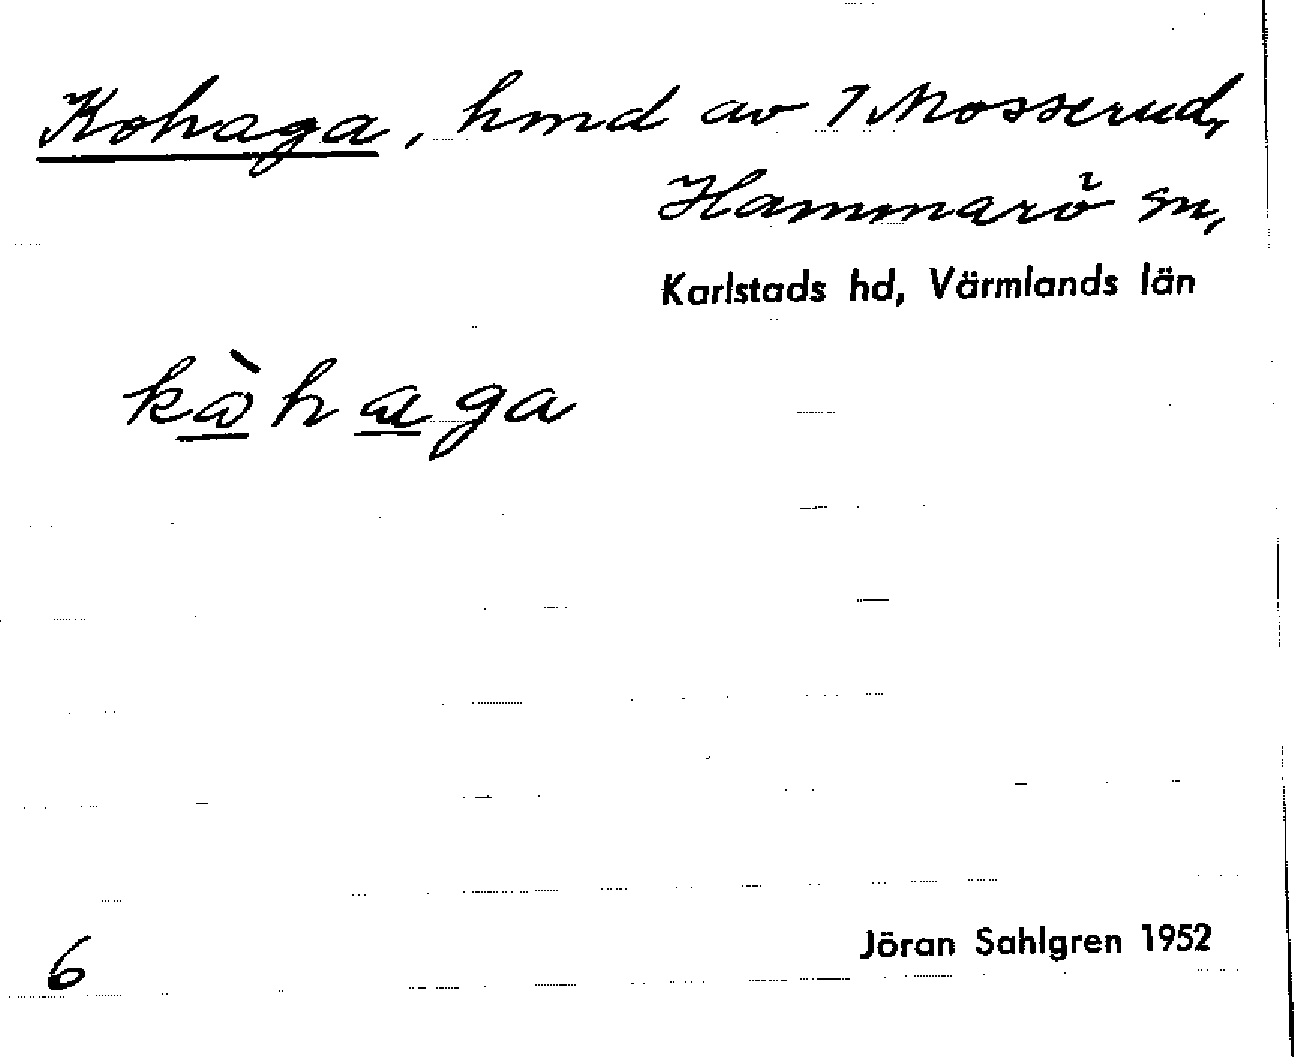 Kohaga, hmd av 7 Mosserud,
Hammarö sn,
Karlstads hd, Värmlands län
kòhaga
6
Jöran Sahlgren 1952